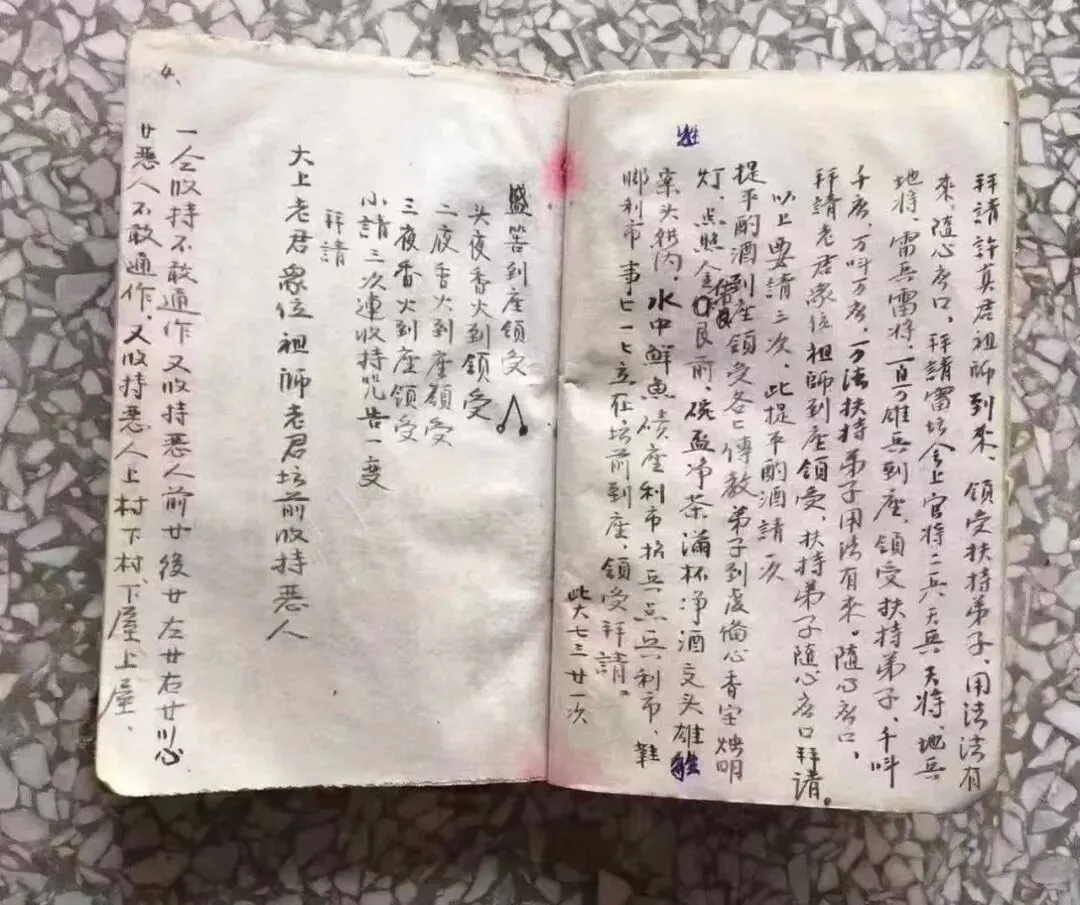 拜請許真君祖師到來、領受扶持弟子、用法法有
來、隨心應口。拜請雷坛会上官將二兵天兵天將、地兵
地將、雷兵雷將、百万雄兵到座、領受扶持弟子、千叫
千應、万叫万應、万法扶持弟子用法有來。隨心應口、
拜請老君衆位祖師到座領受、扶持弟子隨心應口拜請。
以上要請三次、此提平酌酒請一次
提平酌酒到座領受各七傳教弟子到虔俻心香宝燭明
灯、点照金艮前、碗盃净茶滿杯净酒交头雄雞
案头供内、水中鮮魚碛座利市扲兵点兵利市、鞋
脚利市事七一七立在坛前到座、領受拜請。
此大七三廿一次
雞
盛筶到座領受
头夜香火到領受
二夜香火到座領受
三夜香火到座領受
小請三次連收持咒告一变
拜請
大上老君衆位祖師老君坛前收持恶人
4、
一仝收持不敢通作又收持恶人前廿後廿左廿右廿
廿恶人不敢通作、又收持恶人上村下村、下屋上屋、